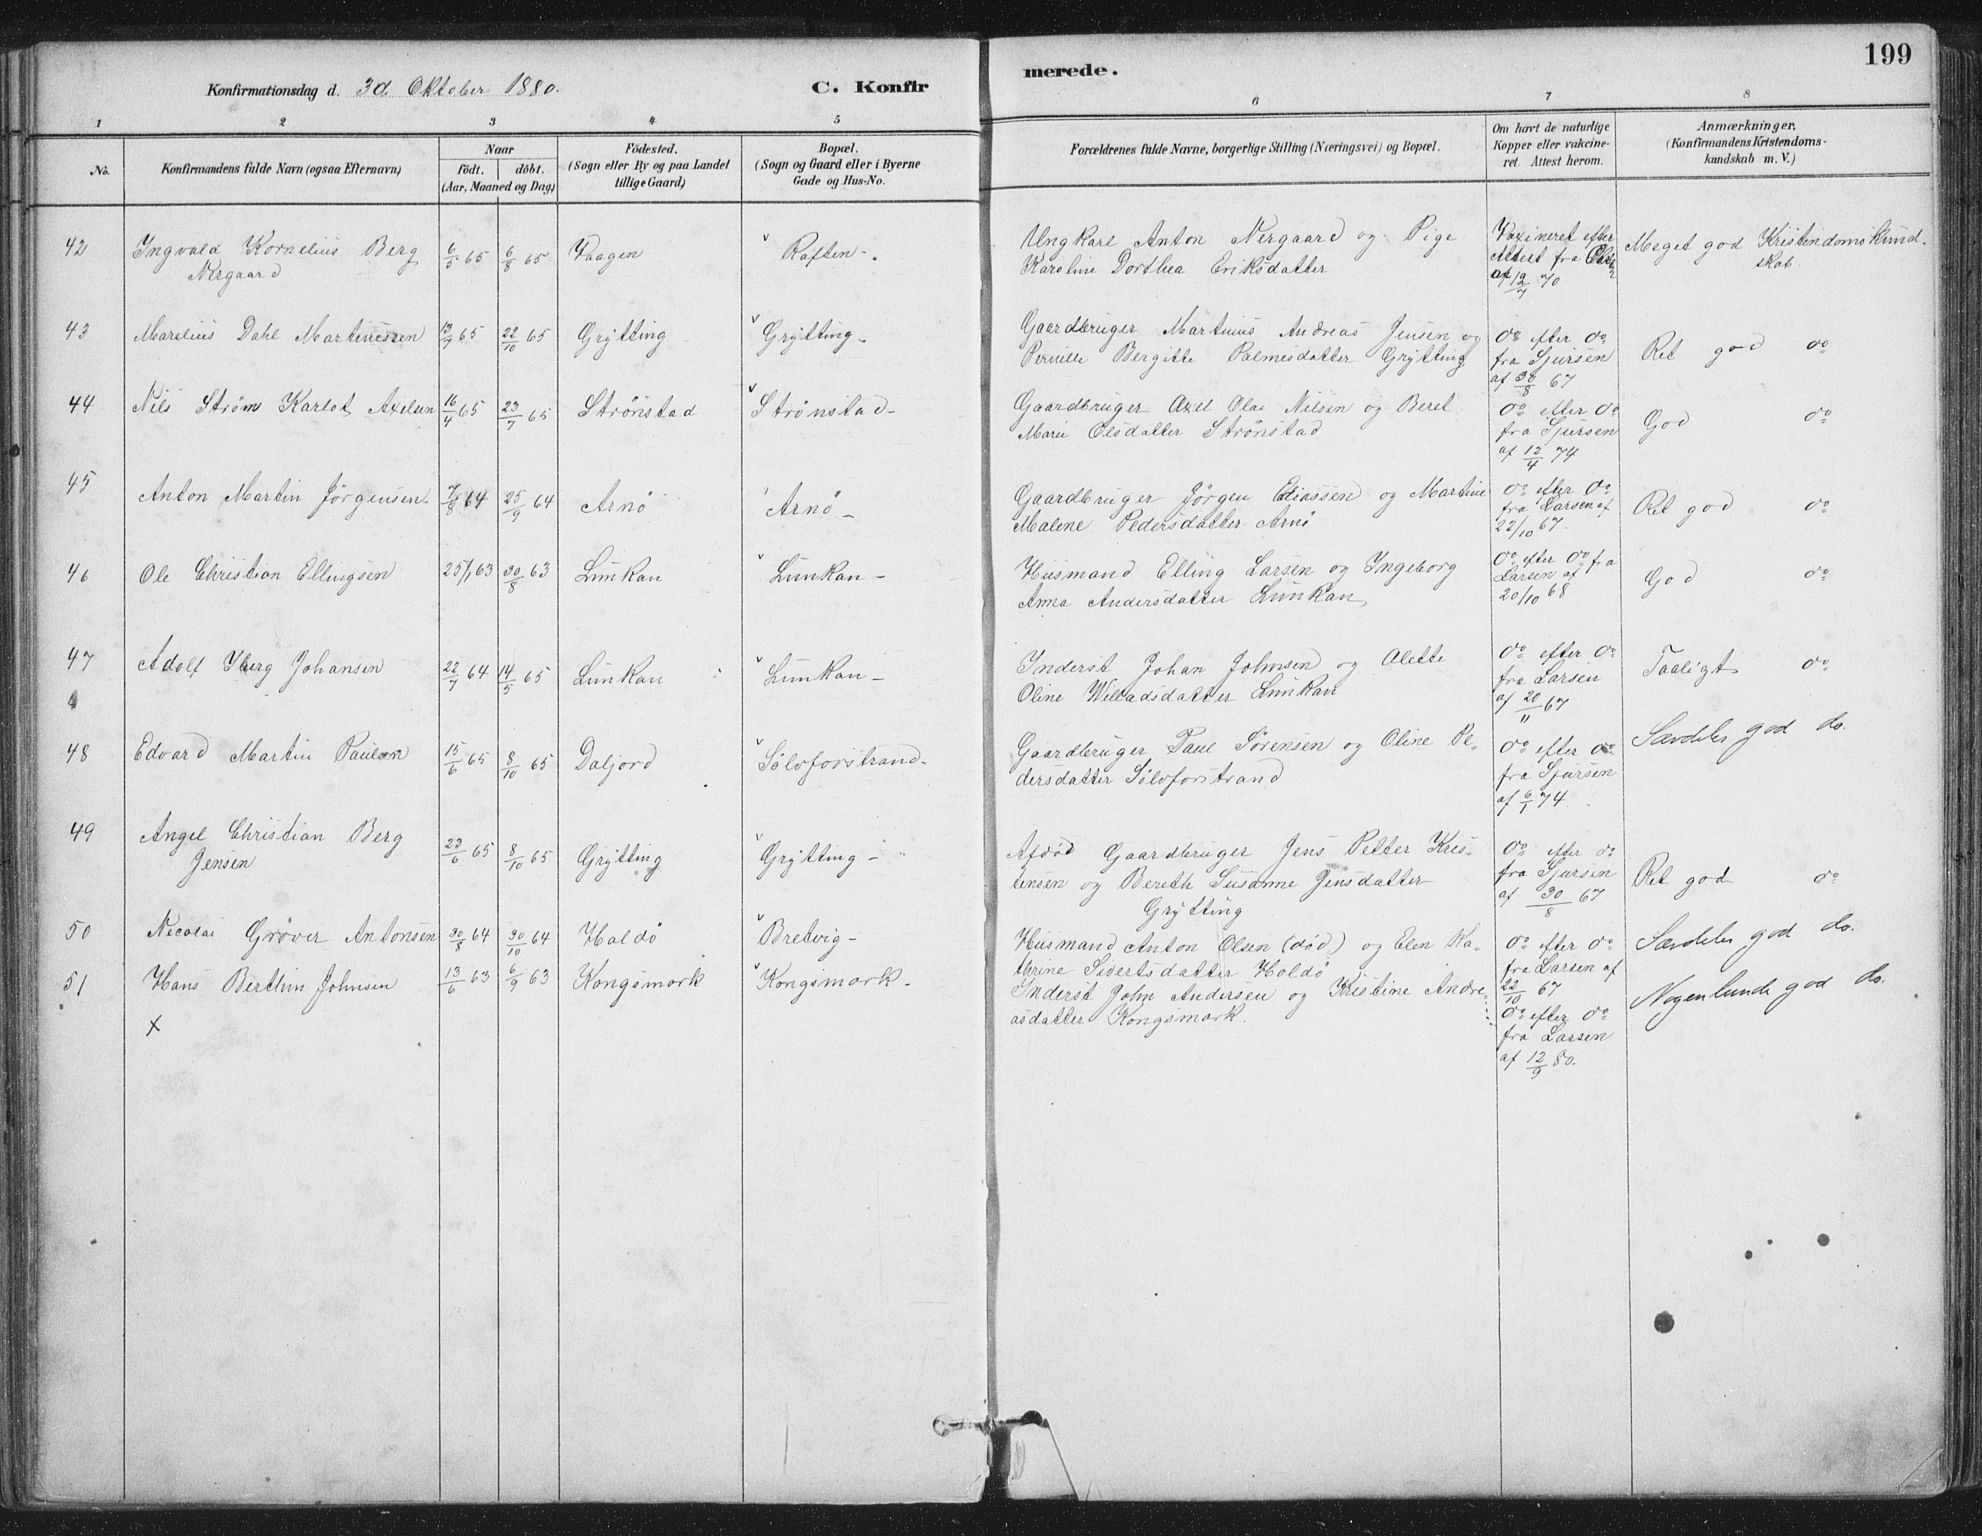 199
Konfirmationsdag d. 3d Oktober 1880.
C. Konfirmerede.
1 2 3 4 5 6 7 8
No.
Konfirmandens fulde Navn (ogsaa Efternavn)
Naar
födt. döbt.
(Aar, Maaned og Dag)
Födested,
(Sogn eller By og paa Landet
tillige Gaard)
Bopæl.
(Sogn og Gaard eller i Byerne
Gade og Hus-No.
Forældrenes fulde Navne, borgerlige Stilling (Næringsvei) og Bopæl.
Om havt de naturlige
Kopper eller vakcine-
ret. Attest herom.
Anmærkninger,
(Konfirmandens Kristendoms-
kundskab m. V.)
42 Ingvald Kornelius Berg 6/5 65 6/8 65 Vaagen Raften -. Ungkarl Anton Nergaard og Pige Vaxineret efter Meget god Kristendomskund-
Nergaard Karoline Dorthea Eriksdatter Attest fra skab.
af 12/7 70
43 Marelius Dahl Martinussen 13/9 65 22/10 65 Grÿtting Grÿtting - Gaardbruger Martinus Andreas Jensen og do efter do Ret god do
Pernille Bergitte Palmesdatter Grÿtting fra Sjursen
af 30/8 67
44 Nils Strøm Karlot Axelsen 16/4 65 23/7 65 Strönstad Strönstad - Gaardbruger Axel Olai Nilsen og Beret do efter do God do
Marie Olsdatter Strönstad fra Sjursen
af 12/4 74
45 Anton Martin Jörgensen 7/8 64 25/9 64 Arnö Arnö - Gaardbruger Jörgen Eliassen og Martine do efter do Ret god do
Malene Pedersdatter Arnö fra Larsen af
22/10 67.
46 Ole Christian Ellingsen 25/1 63 30/8 63 Lunkan Lunkan - Husmand Elling Larsen og Ingeborg do efter do fra God do
Anna Andersdatter Lunkan Larsen af
20/10 68
47 Adolf Yberg Johansen 22/7 64 14/5 65 Lunkan Lunkan - Inderst Johan Johnsen og Alette do efter do Taaligt do
Oline Willadsdatter Lunkan fra Larsen
af 20/11 67
48 Edvard Martin Paulsen 15/6 65 8/10 65 Daljord Sölvforstrand - Gaardbruger Paul Sörensen og Oline Pe- do efter do Særdeles god do.
dersdatter Sölvforstrand fra Sjursen
af 6/1 74.
49 Angel Christian Berg 23/6 65 8/10 65 Grÿtting Grÿtting - Afdöd Gaardbruger Jens Petter Kris- do efter do Ret god do
Jensen tensen og Bereth Susanne Jensdatter fra Sjursen
Grÿtting af 30/8 67
50 Necolai Grøver Antonsen 30/8 64 30/10 64 Holdö Bretvig - Husmand Anton Olsen (död) og Elen Ka- do efter do Særdeles god do.
thrine Sivertsdatter Holdö fra Larsen af
22/10 67
51 Hans Berthin Johnsen 13/6 63 6/9 63 Kongsmark Kongsmark - Inderst John Andersen og Kristine Andre- do efter do Nogenlunde god do.
x asdatter Kongsmark. fra Larsen
af 12/9 80.